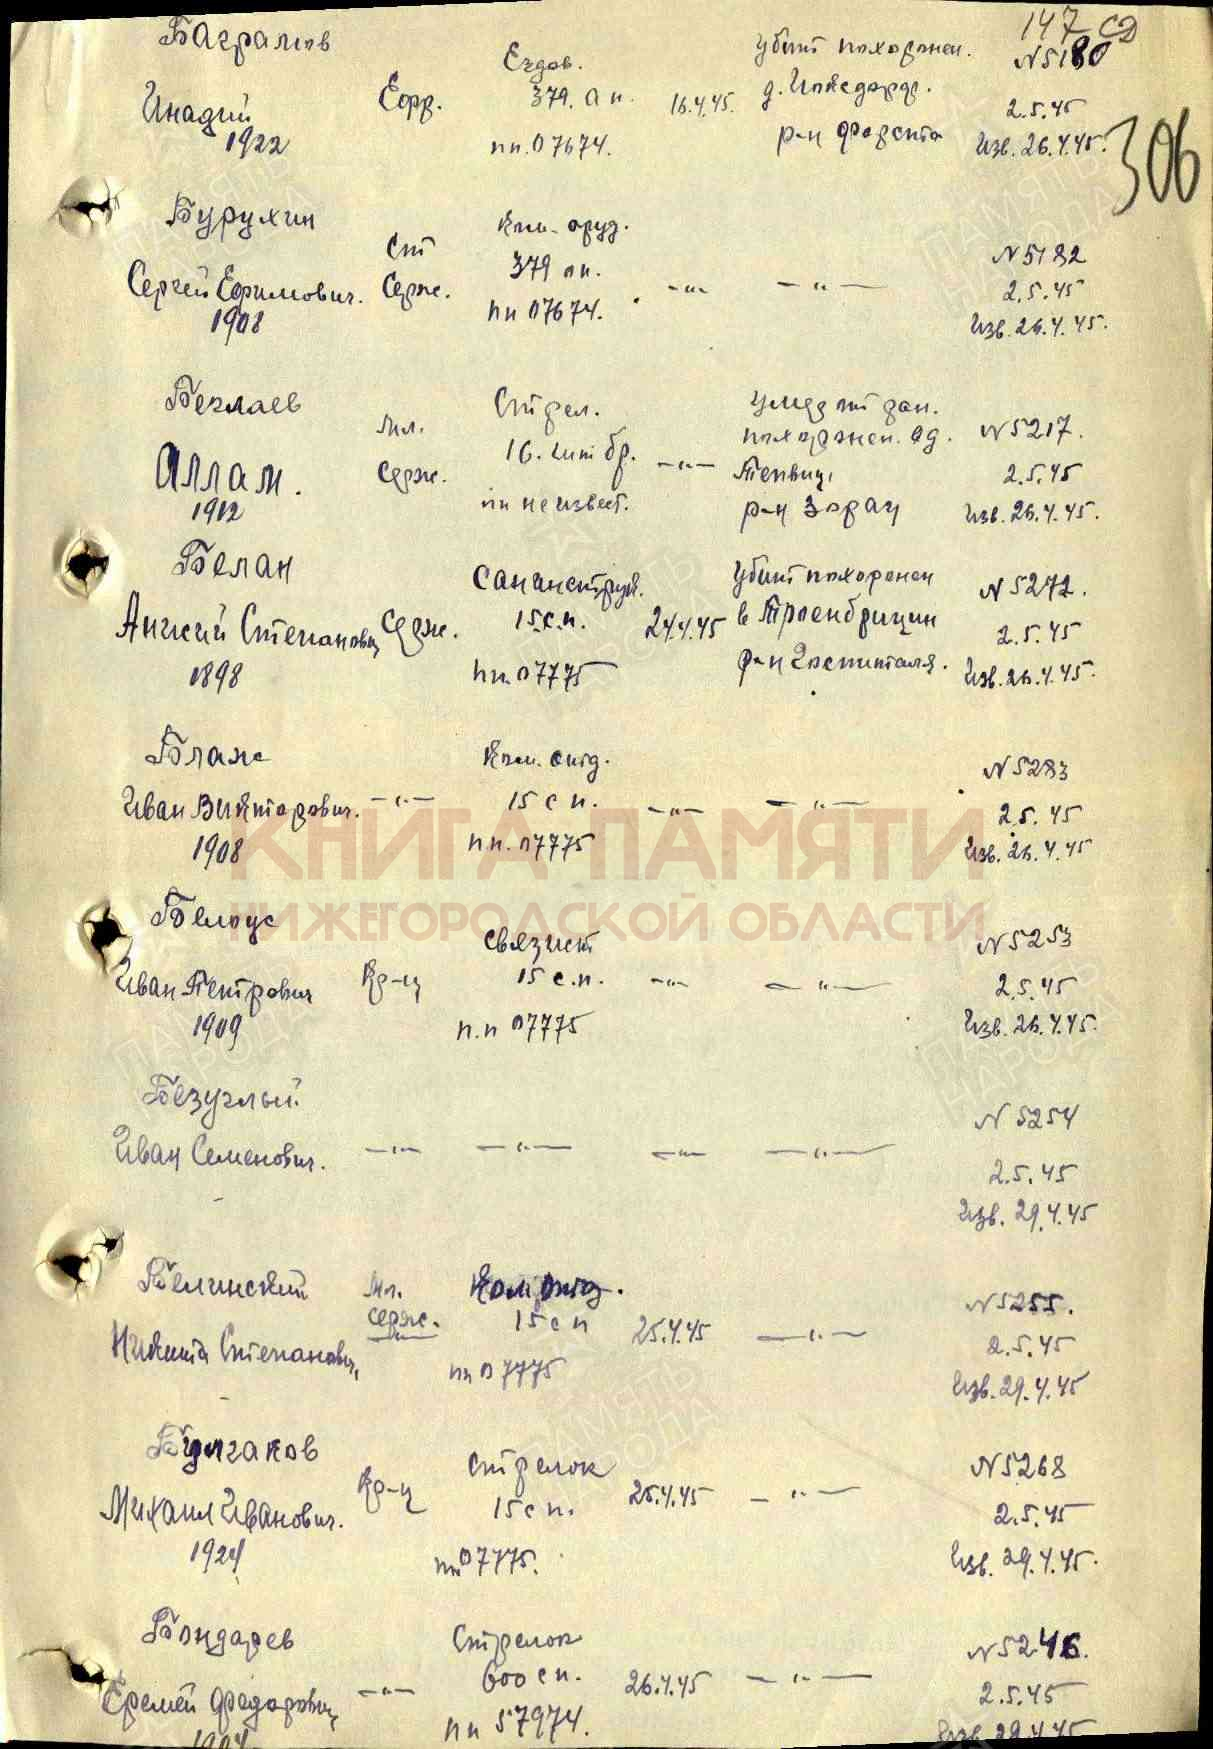 147 сд
306
Багралов
Инадий
1922
Ефр.
Ездов.
379. ап.
пп. 07674.
16.4.45.
Убит похоронен.
д.
р-н
N 5180
2.5.45
Изв. 26.4.45.
Бурухин
Сергей Ефимович.
1908
Ст
Серж.
Ком. оруд.
379 ап.
пп 07674.
-"- -"-
N 5182
2.5.45
Изв. 26.4.45.
Беглаев
Аллам.
1912
Мл.
Серж.
Стрел.
16. шт бр.
пп неизвест.
-"-
Умер от ран.
похоронен.
р-н Зорау
N 5217.
2.5.45
Изв. 26.4.45.
Белан
Степанович
1898
Серж.
Санинструк.
15 с.п.
пп. 07775
24.4.45
Убит похоронен
в Троенбрицин
р-н Госпиталя.
N 5272.
2.5.45
Изв. 26.4.45.
Блаже
Иван Викторович.
1908
-"-
Ком. отд.
15 сп.
пп. 07775
-"- -"-
N 5283
2.5.45
Изв. 26.4.45
Белоус
Иван Петрович
1909
Кр-ц
Связист
15 с.п.
п.п 07775
-"- -"-
N 5253
2.5.45
Изв. 26.4.45.
Безуглый
Иван Семенович.
-"- -"- -"- -"-
N 5254
2.5.45
Изв. 29.4.45
Белинский
Никита Степанович,
Мл.
серж.
Ком отд.
15 сп
пп 07775
25.4.45
-"-
N 5255.
2.5.45
Изв. 29.4.45
Булгаков
Михаил Иванович.
1924
Кр-ц
Стрелок
15 сп.
пп 07775.
25.4.45
-"-
N 5268
2.5.45
Изв. 29.4.45.
Бондарев
Еремей Федорович,
1904
-"-
Стрелок
600 сп.
пп 57974.
26.4.45
-"-
N 5246.
2.5.45
Изв. 29.4.45
КНИГА ПАМЯТИ
НИЖЕГОРОДСКОЙ ОБЛАСТИ